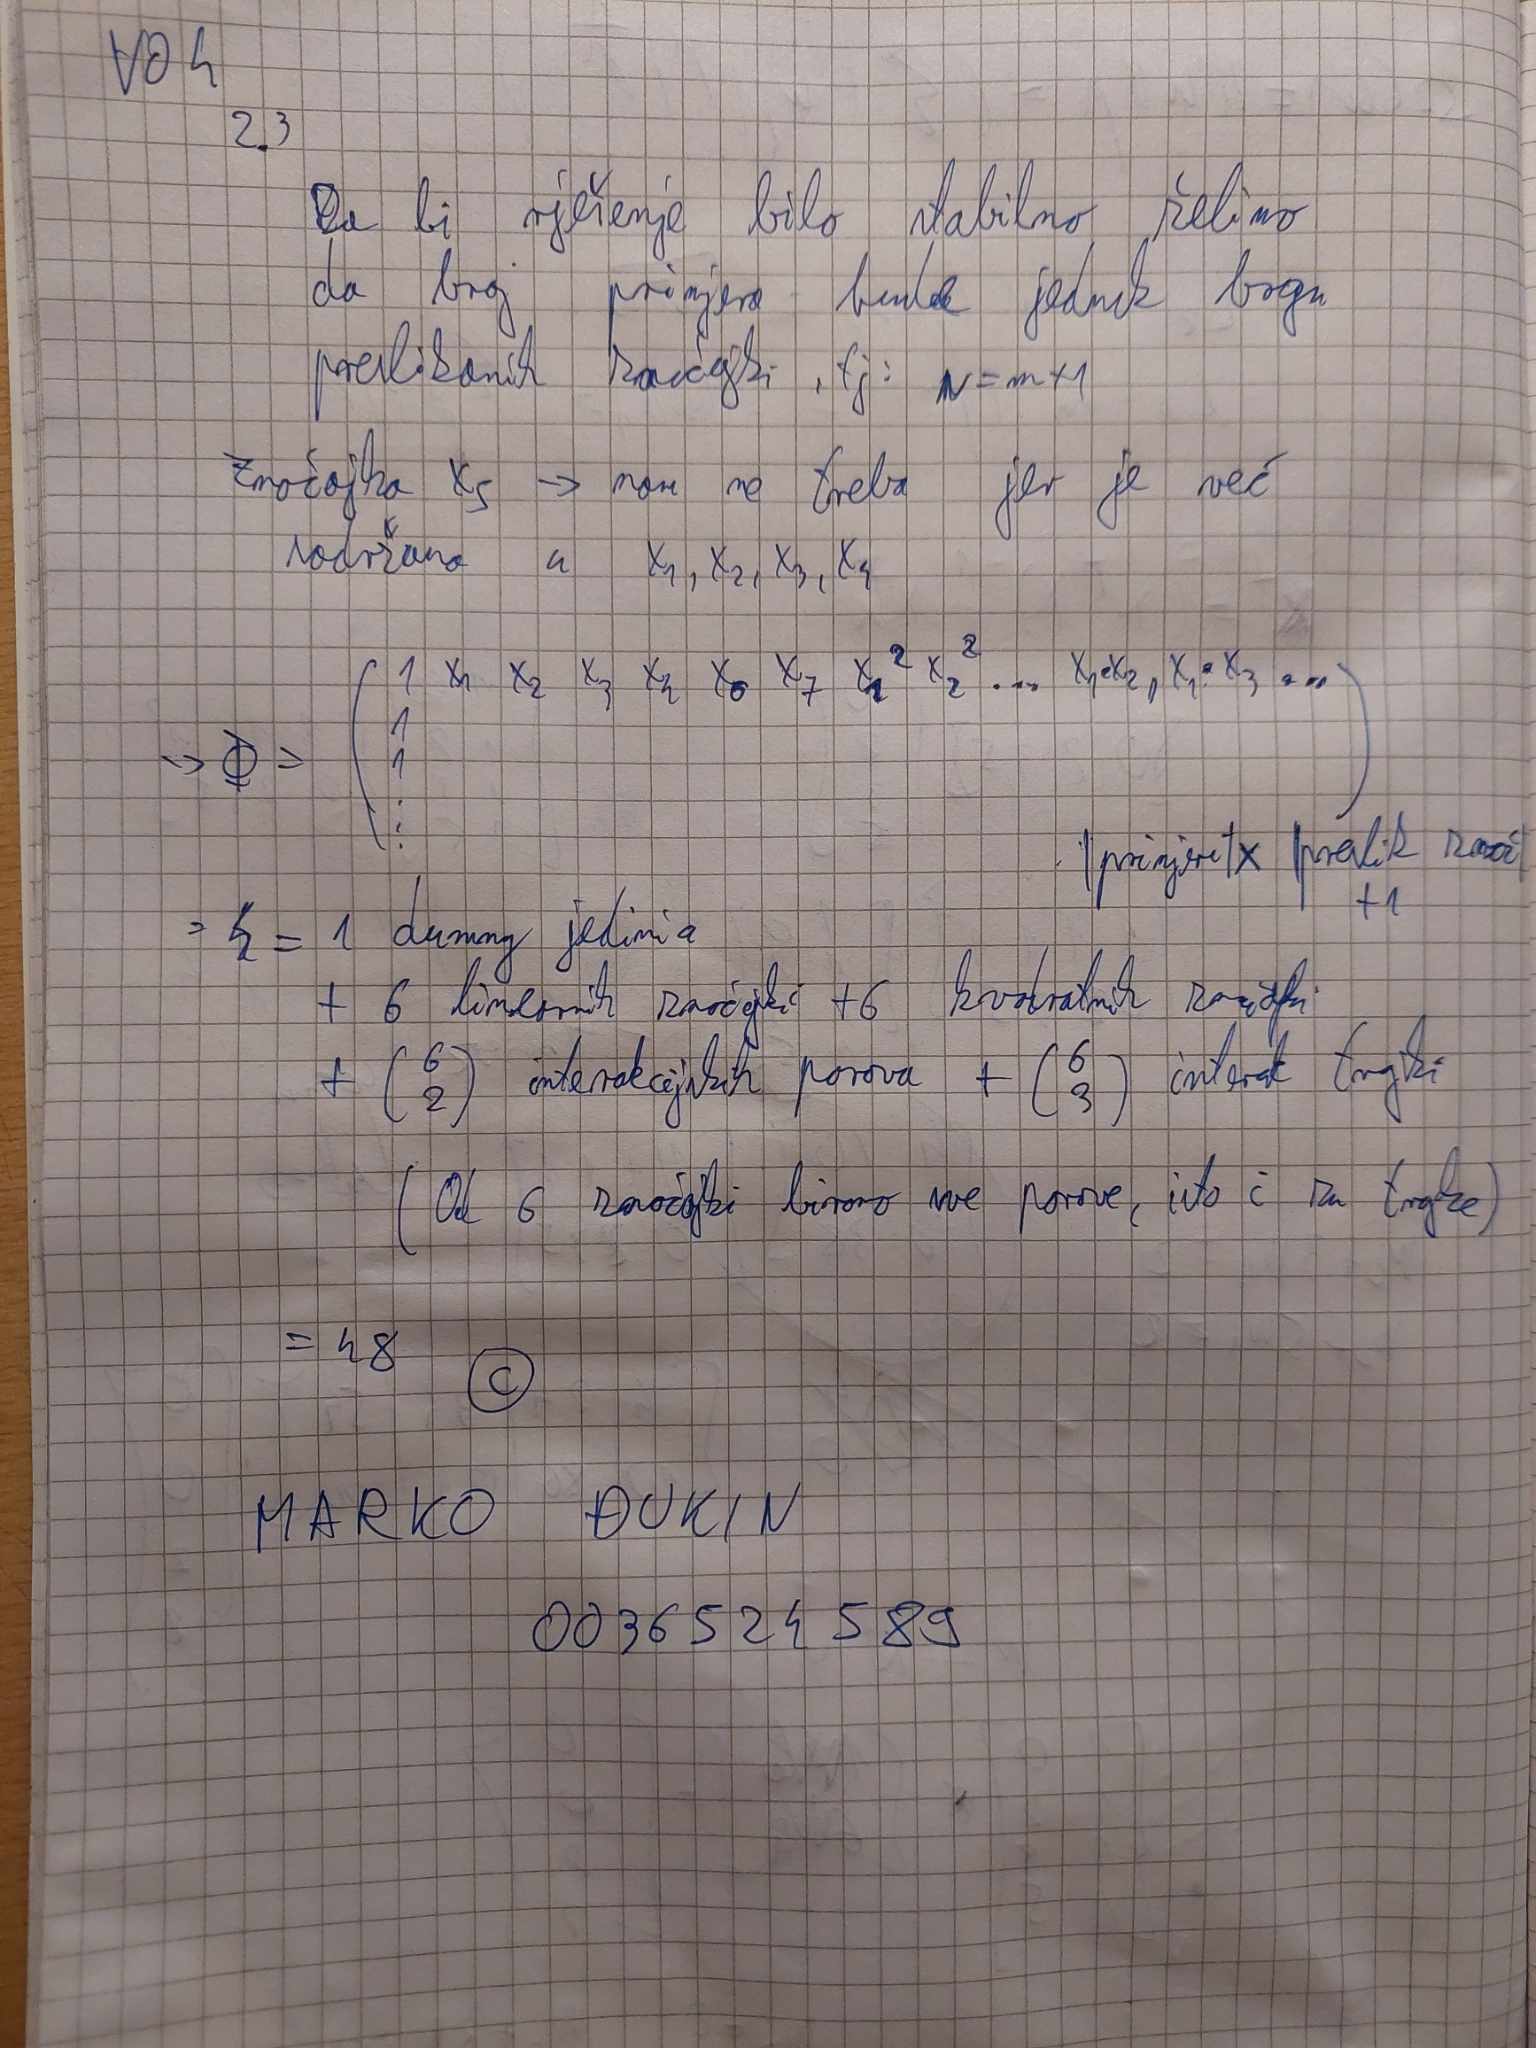 V04
2.3
Da bi rješenje bilo stabilno želimo
da broj primjera bude jednak broju
preslikanih značajki, tj: N = m+1
Značajka x5 → nam ne treba jer je već
sadržana u x1, x2, x3, x4
1 x1 x2 x3 x4 x6 x7 x1² x2² ... x1·x2, x1·x3 ...
1
→ Φ = 1
⋮
|primjeri| x |preslik znač|
+1
= 1 dummy jedinica
+ 6 linearnih značajki + 6 kvadratnih značajki
+ (6 2) interakcijskih parova + (6 3) interak trojki
(Od 6 značajki biramo sve parove, isto i za trojke)
= 48 C
MARKO ĐUKIN
0036524589